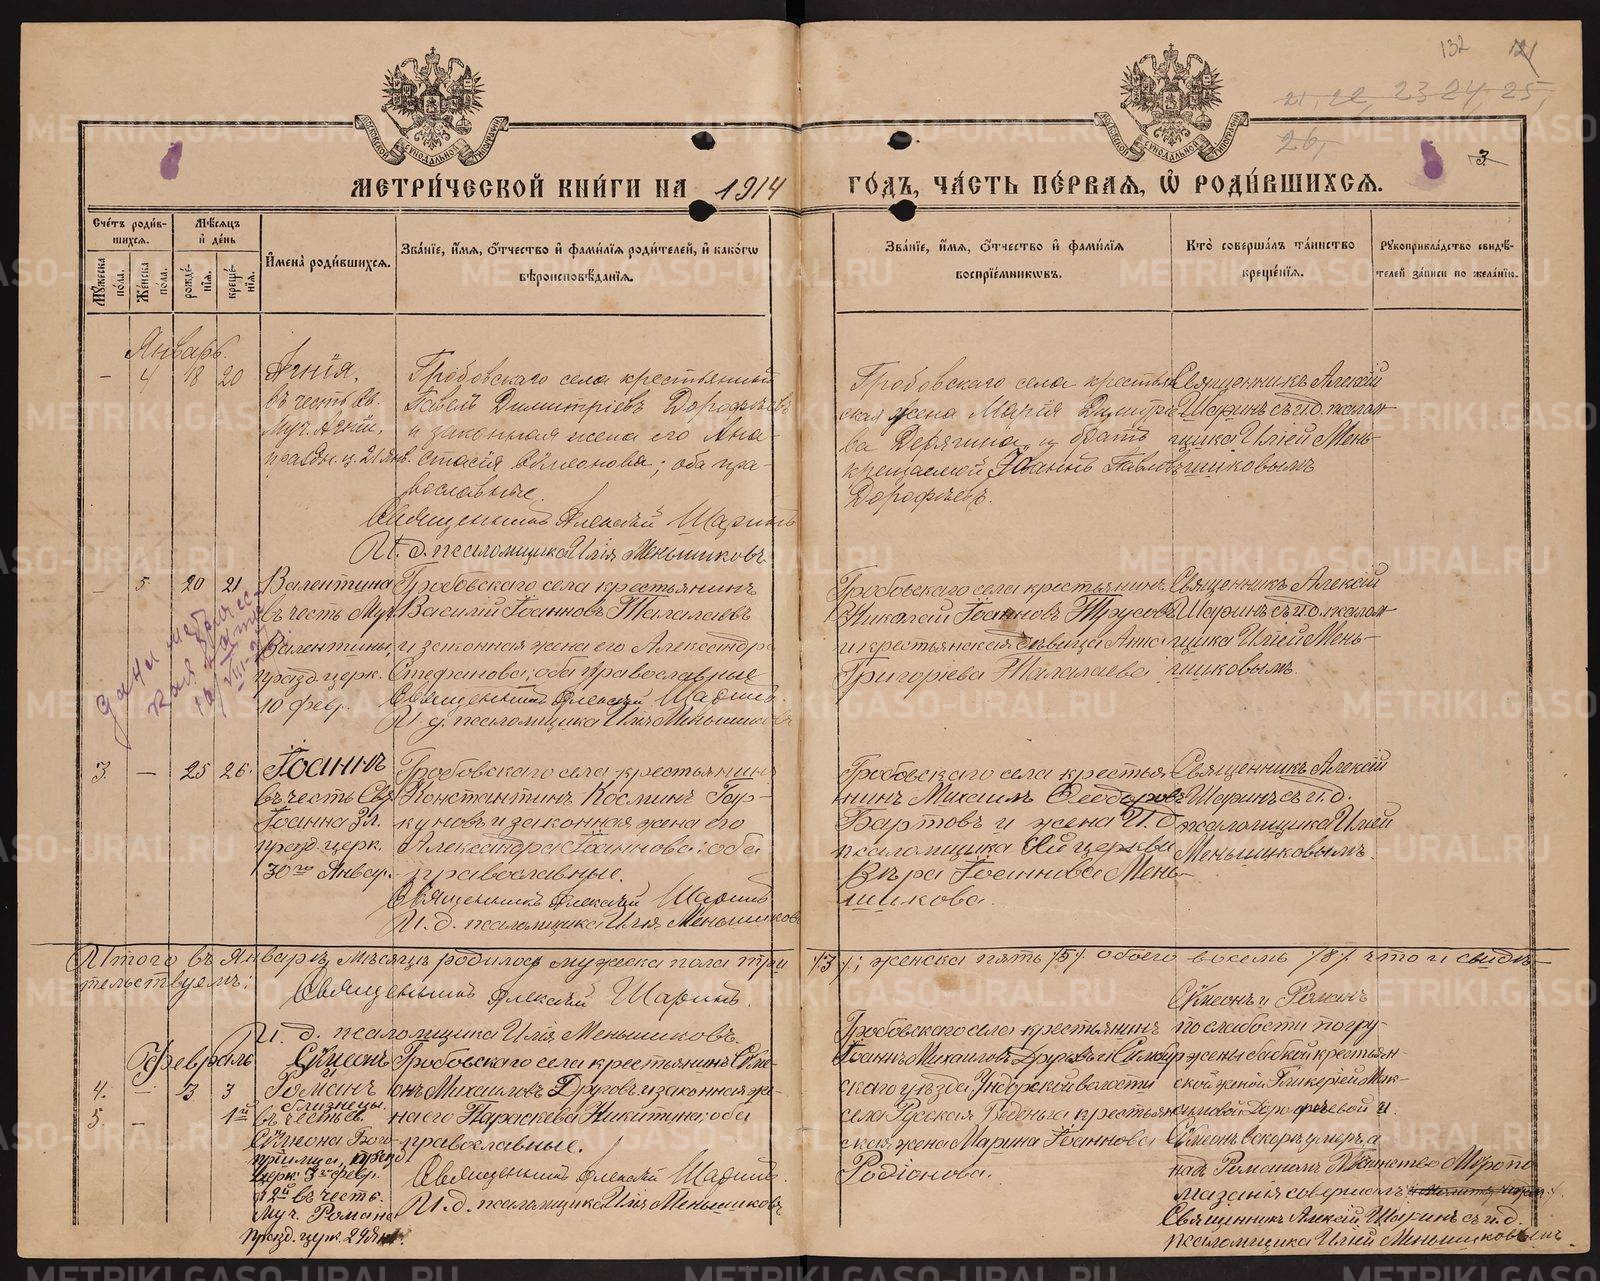 132
21, 22, 23, 24, 25,
26,
3.
МЕТРИ́ЧЕСКОЙ КНИ́ГИ НА 1914
ГО́ДЪ, ЧА́СТЬ ПЕ́РВАЯ, Ѡ РОДИ́ВШИХСЯ.
Сче́тъ роди́вшихся.
Мѣ́сяцъ и де́нь
Му́жеска по́ла.
Же́нска по́ла.
рожде́нїя.
креще́нїя.
И҆мена̀ роди́вшихся.
Зва́нїе, и҆́мя, ѻ҆́тчество и҆ фами́лїя роди́телей, и҆ како́гѡ
вѣроисповѣ́данїя.
Зва́нїе, и҆́мя, ѻ҆́тчество и҆ фами́лїя
воспрїе́мниковъ.
Кто̀ соверша́лъ та́инство
креще́нїя.
Рꙋкоприкла́дство свидѣ́-
телей за́писи по жела́нїю.
Январь.
– 4 18 20
Агнія,
въ честь Св.
Муч. Агніи,
праздн. ц. 21 Янв.
Гробовскаго села крестьянинъ
Павелъ Димитріевъ Дорофѣевъ
и законная жена его Ана-
стасія Сѵмеонова; оба пра-
вославные.
Священникъ Алексѣй Шаринъ
И. д. псаломщика Илія Меньшиковъ
Гробовскаго села крестьян-
ская жена Марія Димитріе-
ва Дерягина и братъ
крещаемой Іоаннъ Павловъ
Дорофѣевъ.
Священникъ Алексій
Шаринъ съ и. д. псалом-
щика Иліей Мень-
шиковымъ
– 5 20 21
Валентина
въ честь Муч.
Валентины,
празд. церк.
10 фев.
Гробовскаго села крестьянинъ
Василій Іоанновъ Талалаевъ
и законная жена его Александра
Стефанова; оба православные
Священникъ Алексѣй Шаринъ.
И. д. псаломщика Илія Меньшиковъ
Гробовскаго села крестьянинъ
Николай Іоанновъ Трусовъ
и крестьянская дѣвица Анна
Григоріева Талалаева
Священникъ Алексій
Шаринъ съ и. д. псалом-
щика Иліей Мень-
шиковымъ.
3. – 25 26.
Іоаннъ
въ честь Свя.
Іоанна Зл.
празд. церк.
30го Январ.
Гробовскаго села крестьянинъ
Константинъ Косминъ Гор-
куновъ и законная жена его
Александра Іоаннова; оба
православные.
Священникъ Алексѣй Шаринъ
И. д. псаломщика Илія Меньшиковъ
Гробовскаго села крестья-
нинъ Михаилъ Ѳеодоровъ
Бартовъ и жена И. д.
псаломщика сей церкви
Вѣра Іоаннова Мень-
шикова.
Священникъ Алексій
Шаринъ съ и. д.
псаломщика Иліей
Меньшиковымъ.
Итого въ Январѣ мѣсяцѣ родилось мужеска пола три /3/; женска пять /5/ обоего восемь /8/ что и свидѣ-
тельствуемъ:
Священникъ Алексѣй Шаринъ.
И. д. псаломщика Илія Меньшиковъ.
Февраль
4. – 3 3
5. –
Сѵмеонъ
и
Романъ
близнецы.
1ый въ честь св.
Сѵмеона Бого-
пріимца, празд.
церк. 3го февр.
2й въ честь
Муч. Романа
празд. церк. 29 Янв.
Гробовскаго села крестьянинъ Сѵме-
онъ Михаиловъ Друговъ и законная же-
на его Параскева Никитина; оба
православные.
Священникъ Алексѣй Шаринъ.
И. д. псаломщика Илія Меньшиковъ
Гробовскаго села крестьянинъ
Іоаннъ Михаиловъ Друговъ и Симбир-
скаго уѣзда Ундорской волости
села Русская крестьян-
ская жена Марина Іоаннова
Родіонова.
Сѵмеонъ и Романъ
по слабости погру-
жены бабкой крестьян-
ской женой Гликеріей Мак-
симовой Дорофѣевой и
Сѵмеонъ вскорѣ умеръ, а
надъ Романомъ Таинство Мѵропо-
мазанія совершалъ
Священникъ Алексій Шаринъ съ и. д.
псаломщика Иліей Меньшиковымъ.
METRIKI.GASO-URAL.RU